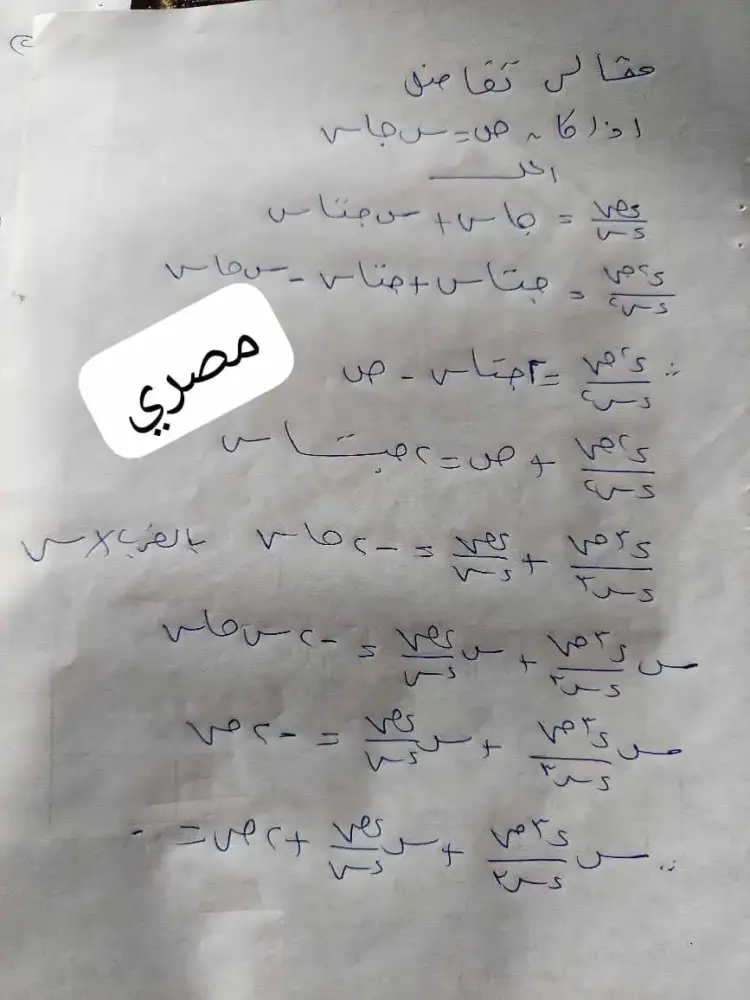 مقالى تفاضل
اذا كان ص = س جاس
اثبت
دص/دس = جاس + س جتاس
د²ص/دس² = جتاس + جتاس - س جاس
∴ د²ص/دس² = ٢جتاس - ص
د²ص/دس² + ص = ٢جتاس
د³ص/دس³ + دص/دس = -٢جاس بالضرب × س
س د³ص/دس³ + س دص/دس = -٢ س جاس
س د³ص/دس³ + س دص/دس = -٢ص
∴ س د³ص/دس³ + س دص/دس + ٢ص = ٠
مصري